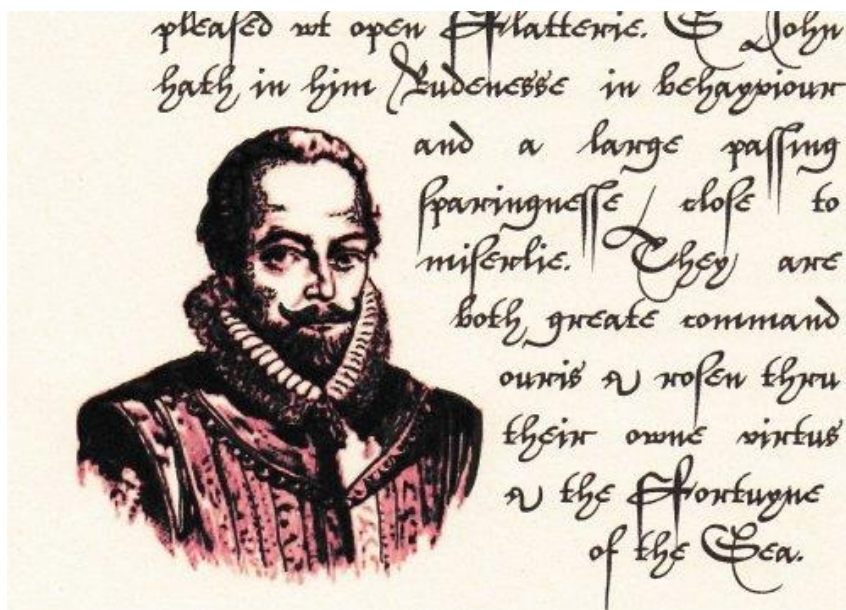 pleaſed wt open Fflatterie. S John
hath in him Rudenesse in behayviour
and a large paſſing
ſparingneſſe / cloſe to
miſerlie. They are
both greate command
ouris & roſen thru
their owne virtus
& the Ffortuyne
of the Sea.